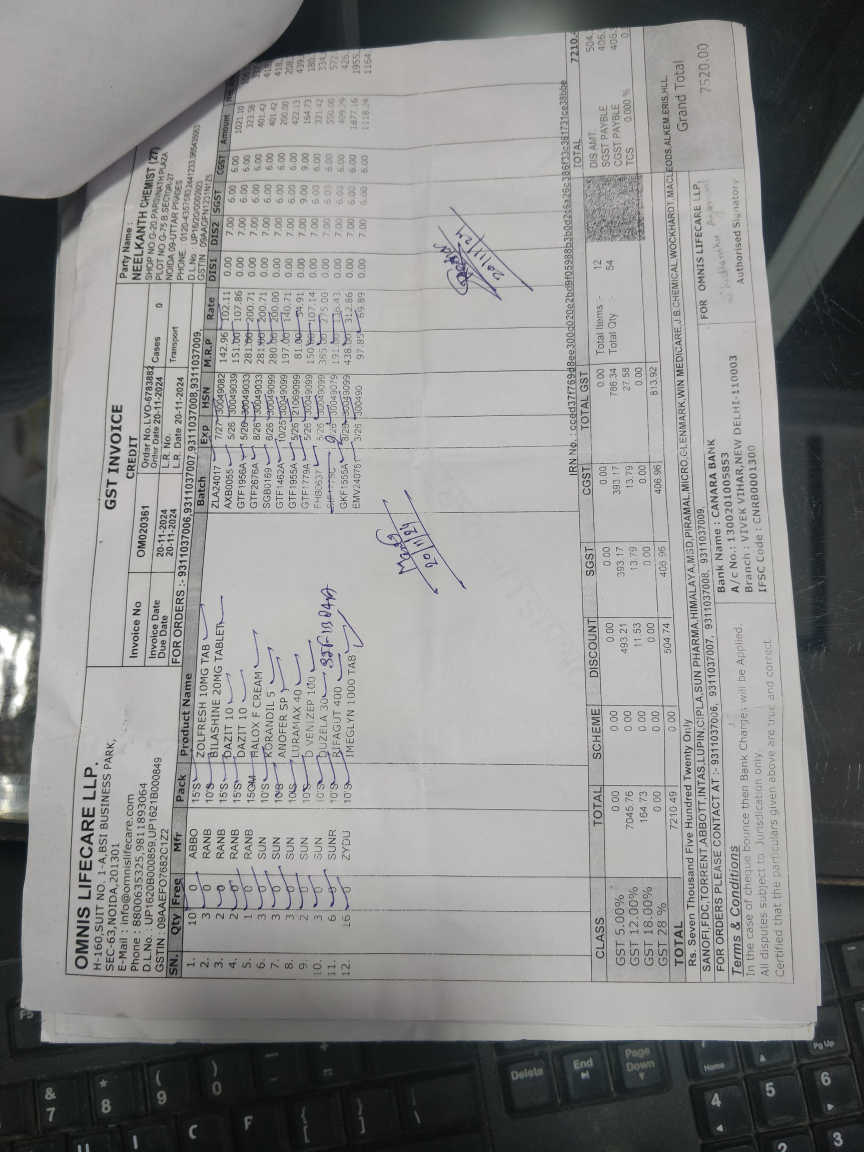 OMNIS LIFECARE LLP.
H-160,SUIT NO. 1-A,BSI BUSINESS PARK,
SEC-63,NOIDA,201301
E-Mail : info@omnislifecare.com
Phone : 8800635325,9811893064
D.L No. : UP1620B000859,UP1621B000849
GSTIN : 09AAEFO7682C1Z2
GST INVOICE
CREDIT
Invoice No OM020361 Ordar No. LVO-6783882
Invoice Date 20-11-2024 Order Date 20-11-2024 Cases 0
Due Date 20-11-2024 L.R. No. Transport
L.R. Date 20-11-2024
FOR ORDERS :-9311037006,9311037007,9311037008,9311037009,
Party Name :
NEELKANTH CHEMIST (27)
SHOP NO.G-20 PARSHNATH PLAZA
PLOT NO.G-75 B,SECTOR-27
NOIDA 09-UTTAR PRADES
PHONE
D.L.No.
GSTIN
SN. Qty Free Mfr Pack Product Name Batch Exp HSN M.R.P Rate DIS1 DIS2 SGST CGST Amount
1. 10 0 ABBO 15'S ZOLFRESH 10MG TAB ZLA24017 7/27 30049082 142.96 102.11 0.00 7.00 6.00 6.00 1021.10
2. 3 0 RANB 10'S BILASHINE 20MG TABLET AXB0055 5/26 30049039 151.00 107.86 0.00 7.00 6.00 6.00 323.58
3. 2 0 RANB 15'S DAZIT 10 GTF1956A 5/26 30049033 281.00 200.71 0.00 7.00 6.00 6.00 401.42
4. 2 0 RANB 15'S DAZIT 10 GTF2676A 8/26 30049033 281.00 200.71 0.00 7.00 6.00 6.00 401.42
5. 1 0 RANB 15GM HALOX F CREAM SGB0169 6/26 30049099 280.00 200.00 0.00 7.00 6.00 6.00 200.00
6. 3 0 SUN 10'S KORANDIL 5 GTF1462A 10/25 30049099 197.00 140.71 0.00 7.00 6.00 6.00 422.13
7. 3 0 SUN 10'S ANOFER SP GTF1955A 5/26 21069099 81.00 54.91 0.00 7.00 9.00 9.00 164.73
8. 3 0 SUN 10'S LURAMAX 40 GTF1779A 5/26 30049099 150.00 107.14 0.00 7.00 6.00 6.00 321.42
9. 2 0 SUN 10'S D VENIZEP 100 5/26 30049099 385.00 275.00 0.00 7.00 6.00 6.00 550.00
10. 3 0 SUN 10'S DUZELA 30
11. 6 0 SUNR 10'S RIFAGUT 400 GKF1555A 8/26 30049099 438.00 312.86 0.00 7.00 6.00 6.00 1877.16
12. 16 0 ZYDU 10'S IMEGLYN 1000 TAB EMV24075 3/26 300490 97.85 69.89 0.00 7.00 6.00 6.00 1118.24
20/11/24
20/11/24
CLASS TOTAL SCHEME DISCOUNT SGST CGST TOTAL GST
GST 5.00% 0.00 0.00 0.00 0.00 0.00 0.00
GST 12.00% 7045.76 0.00 493.21 393.17 393.17 786.34
GST 18.00% 164.73 0.00 11.53 13.79 13.79 27.58
GST 28 % 0.00 0.00 0.00 0.00 0.00 0.00
TOTAL 7210.49 0.00 504.74 406.96 406.96 813.92
Total Items :- 12
Total Qty :- 54
TOTAL 7210.4
DIS AMT 504.
SGST PAYBLE 406.
CGST PAYBLE 406.
TCS 0.000 %
Grand Total 7520.00
Rs. Seven Thousand Five Hundred Twenty Only
SANOFI,FDC,TORRENT,ABBOTT,INTAS,LUPIN,CIPLA,SUN PHARMA,HIMALAYA,MSD,PIRAMAL,MICRO,GLENMARK,WIN MEDICARE,J.B.CHEMICAL,WOCKHARDT,MACLEODS,ALKEM,ERIS,HLL,
FOR ORDERS PLEASE CONTACT AT :- 9311037006, 9311037007, 9311037008, 9311037009,
Terms & Conditions
In the case of cheque bounce then Bank Charges will be Applied.
All disputes subject to Jurisdication only.
Certified that the particulars given above are true and correct.
Bank Name : CANARA BANK
A/c No.: 1300201005853
Branch : VIVEK VIHAR,NEW DELHI-110003
IFSC Code : CNRB0001300
FOR OMNIS LIFECARE LLP.
Authorised Signatory